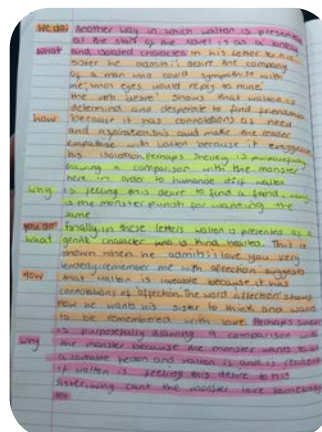 we do: Another way in which walton is presented
at the start of the novel is as a lonely
what and isolated character in his letter to his
sister he admit: i desire the company
of a man who could sympathise with
me; whos eyes would reply to mine'
the verb 'desire' shows that walton is
determind and desperate to find friendship
how because it has conotations of need
and aspiration. this could make the reader
empathise with walton because it exaggerate
his isolation. perhaps shelley is purposefully
drawing a comparison with the monster
here in order to humanise it: if walton
why is feeling this desire to find a friend, why
is the monster punish for wanting the
same
you do: Finally, in these letters walton is presented as a
what gentle character who is kind hearted. This is
shown when he admit: i love you very
tenderly. remember me with affection suggests
How that walton is loveable because it has
connotations of affection. The word affection shows
how he wants his sister to think and wants
to be remembered with love. Perhaps shelley
is purposefully drawing a comparison with
why the monster because the monster wants to be
a loveable person and walton is and is
if walton is feeling this desire to his
sister, why cant the monster love somebody
too